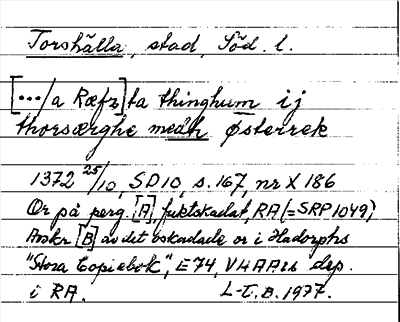 Torshälla, stad, Söd. l.
[.../a Ræfz]ta thinghum ij
thorsærghe medh Østerrek
1372 25/10, SD10, s. 167, nr X 186
Or på perg. [A], fuktskadat, RA (=SRP 1049)
Avskr [B] av det oskadade or i Hadorphs
"Stora Copiebok", E74, VHAAs dep.
i RA. L-E.B. 1977.